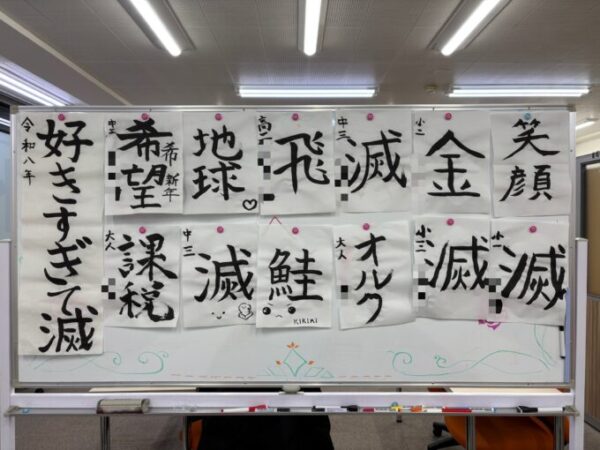 令和八年
好きすぎて滅
中三
希望
希
新年
地球
高一
飛
中三
滅
小二
金
笑顔
大人
課税
中三
滅
鮭
KIKIKI
大人
オルク
小三
滅
小一
滅